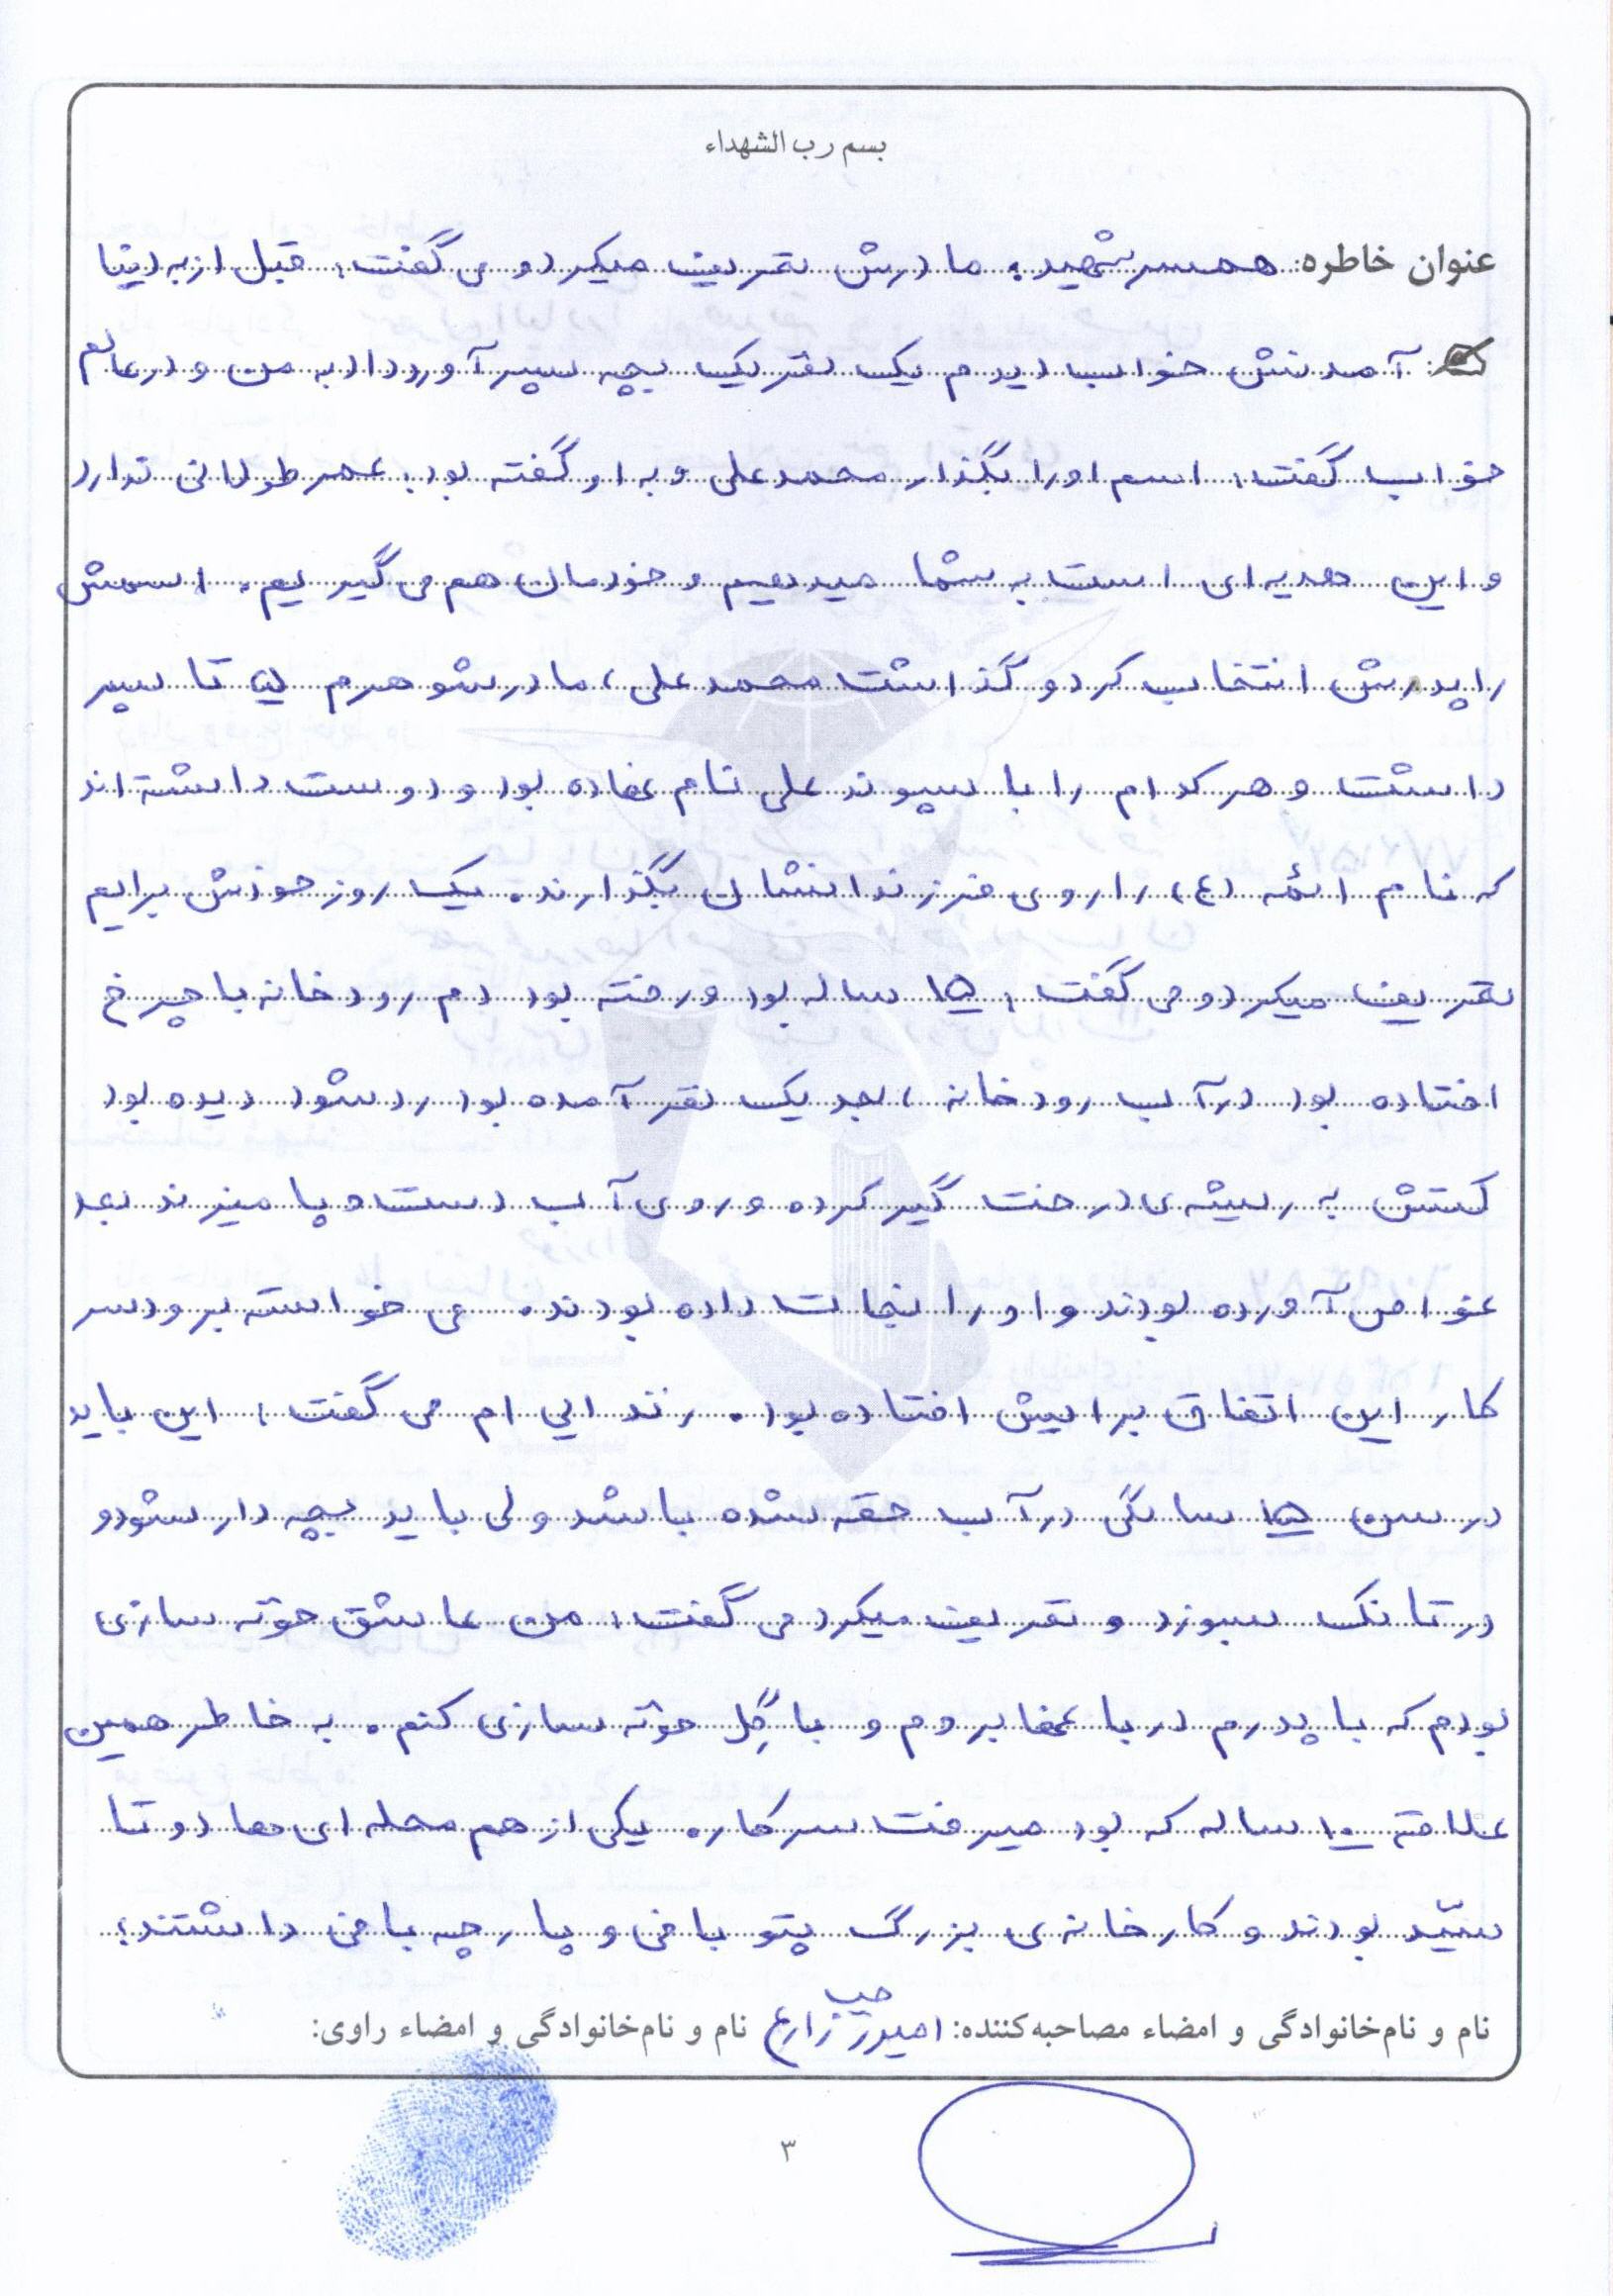 بسم رب الشهداء
عنوان خاطره: همسر شهید: مادرش تعریف میکرد و می گفت: قبل از به دنیا
آمدنش خواب دیدم یک نفر یک بچه پسر آورد داد به من و در عالم
خواب گفت: اسم او را بگذار محمدعلی و به او گفته بود: عمر طولانی ندارد
و این هدیه ای است به شما میدهیم و خودمان هم می گیریم. اسمش
را پدرش انتخاب کرد و گذاشت محمدعلی، مادر شوهرم ۵ تا پسر
داشت و هر کدام را با پسوند علی نام نهاده بود و دوست داشته اند
که نام ائمه (ع) را روی فرزندانشان بگذارند. یک روز خودش برایم
تعریف میکرد و می گفت: ۱۵ ساله بود و رفته بود دم رودخانه با چرخ
افتاده بود در آب رودخانه، بعد یک نفر آمده بود رد شود دیده بود
کتش به ریشه ی درخت گیر کرده و روی آب دست و پا میزند بعد
غواص آورده بودند و او را نجات داده بودند. می خواسته برود سر
کار این اتفاق برایش افتاده بود. زندایی ام می گفت: این باید
در سن ۱۵ سالگی در آب خفه شده باشد ولی باید بچه دار شود و
در تانک بسوزد و تعریف میکرد می گفت: من عاشق خونه سازی
بودم که با پدرم در باغها بروم و با گِل خونه سازی کنم. به خاطر همین
علاقه ۱۰ ساله که بود میرفت سر کار. یکی از هم محله ای ها دو تا
سیّد بودند و کارخانه ی بزرگ پتو بافی و پارچه بافی داشتند؛
نام و نام‌خانوادگی و امضاء مصاحبه‌کننده: زارع نام و نام‌خانوادگی و امضاء راوی:
۳